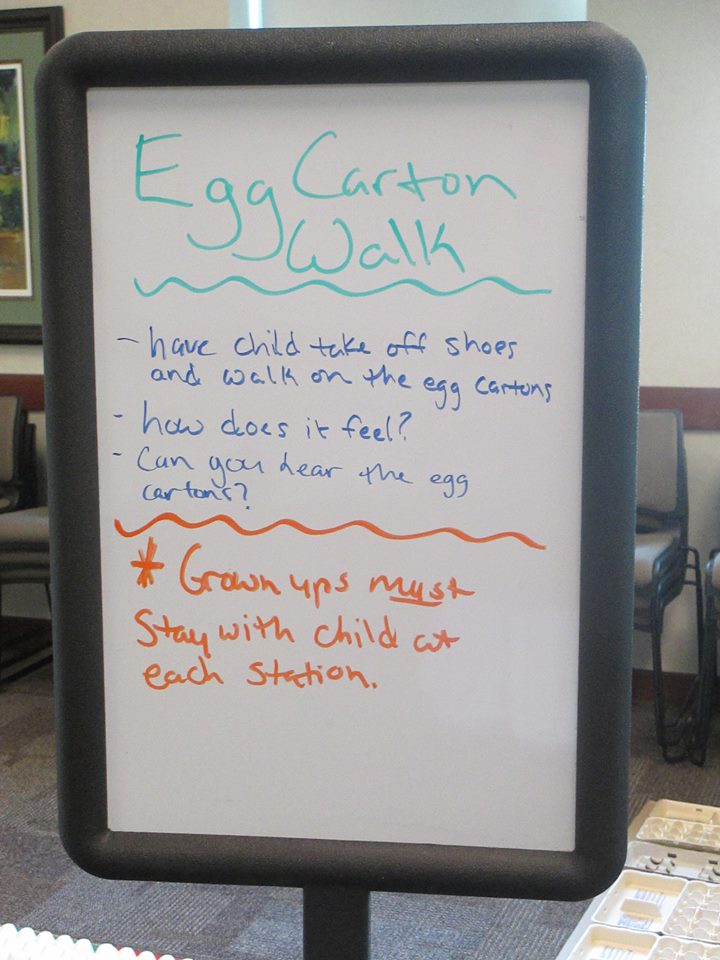 Egg Carton
Walk
- have child take off shoes
and walk on the egg cartons
- how does it feel?
- Can you hear the egg
cartons?
* Grown ups must
Stay with child at
each station.